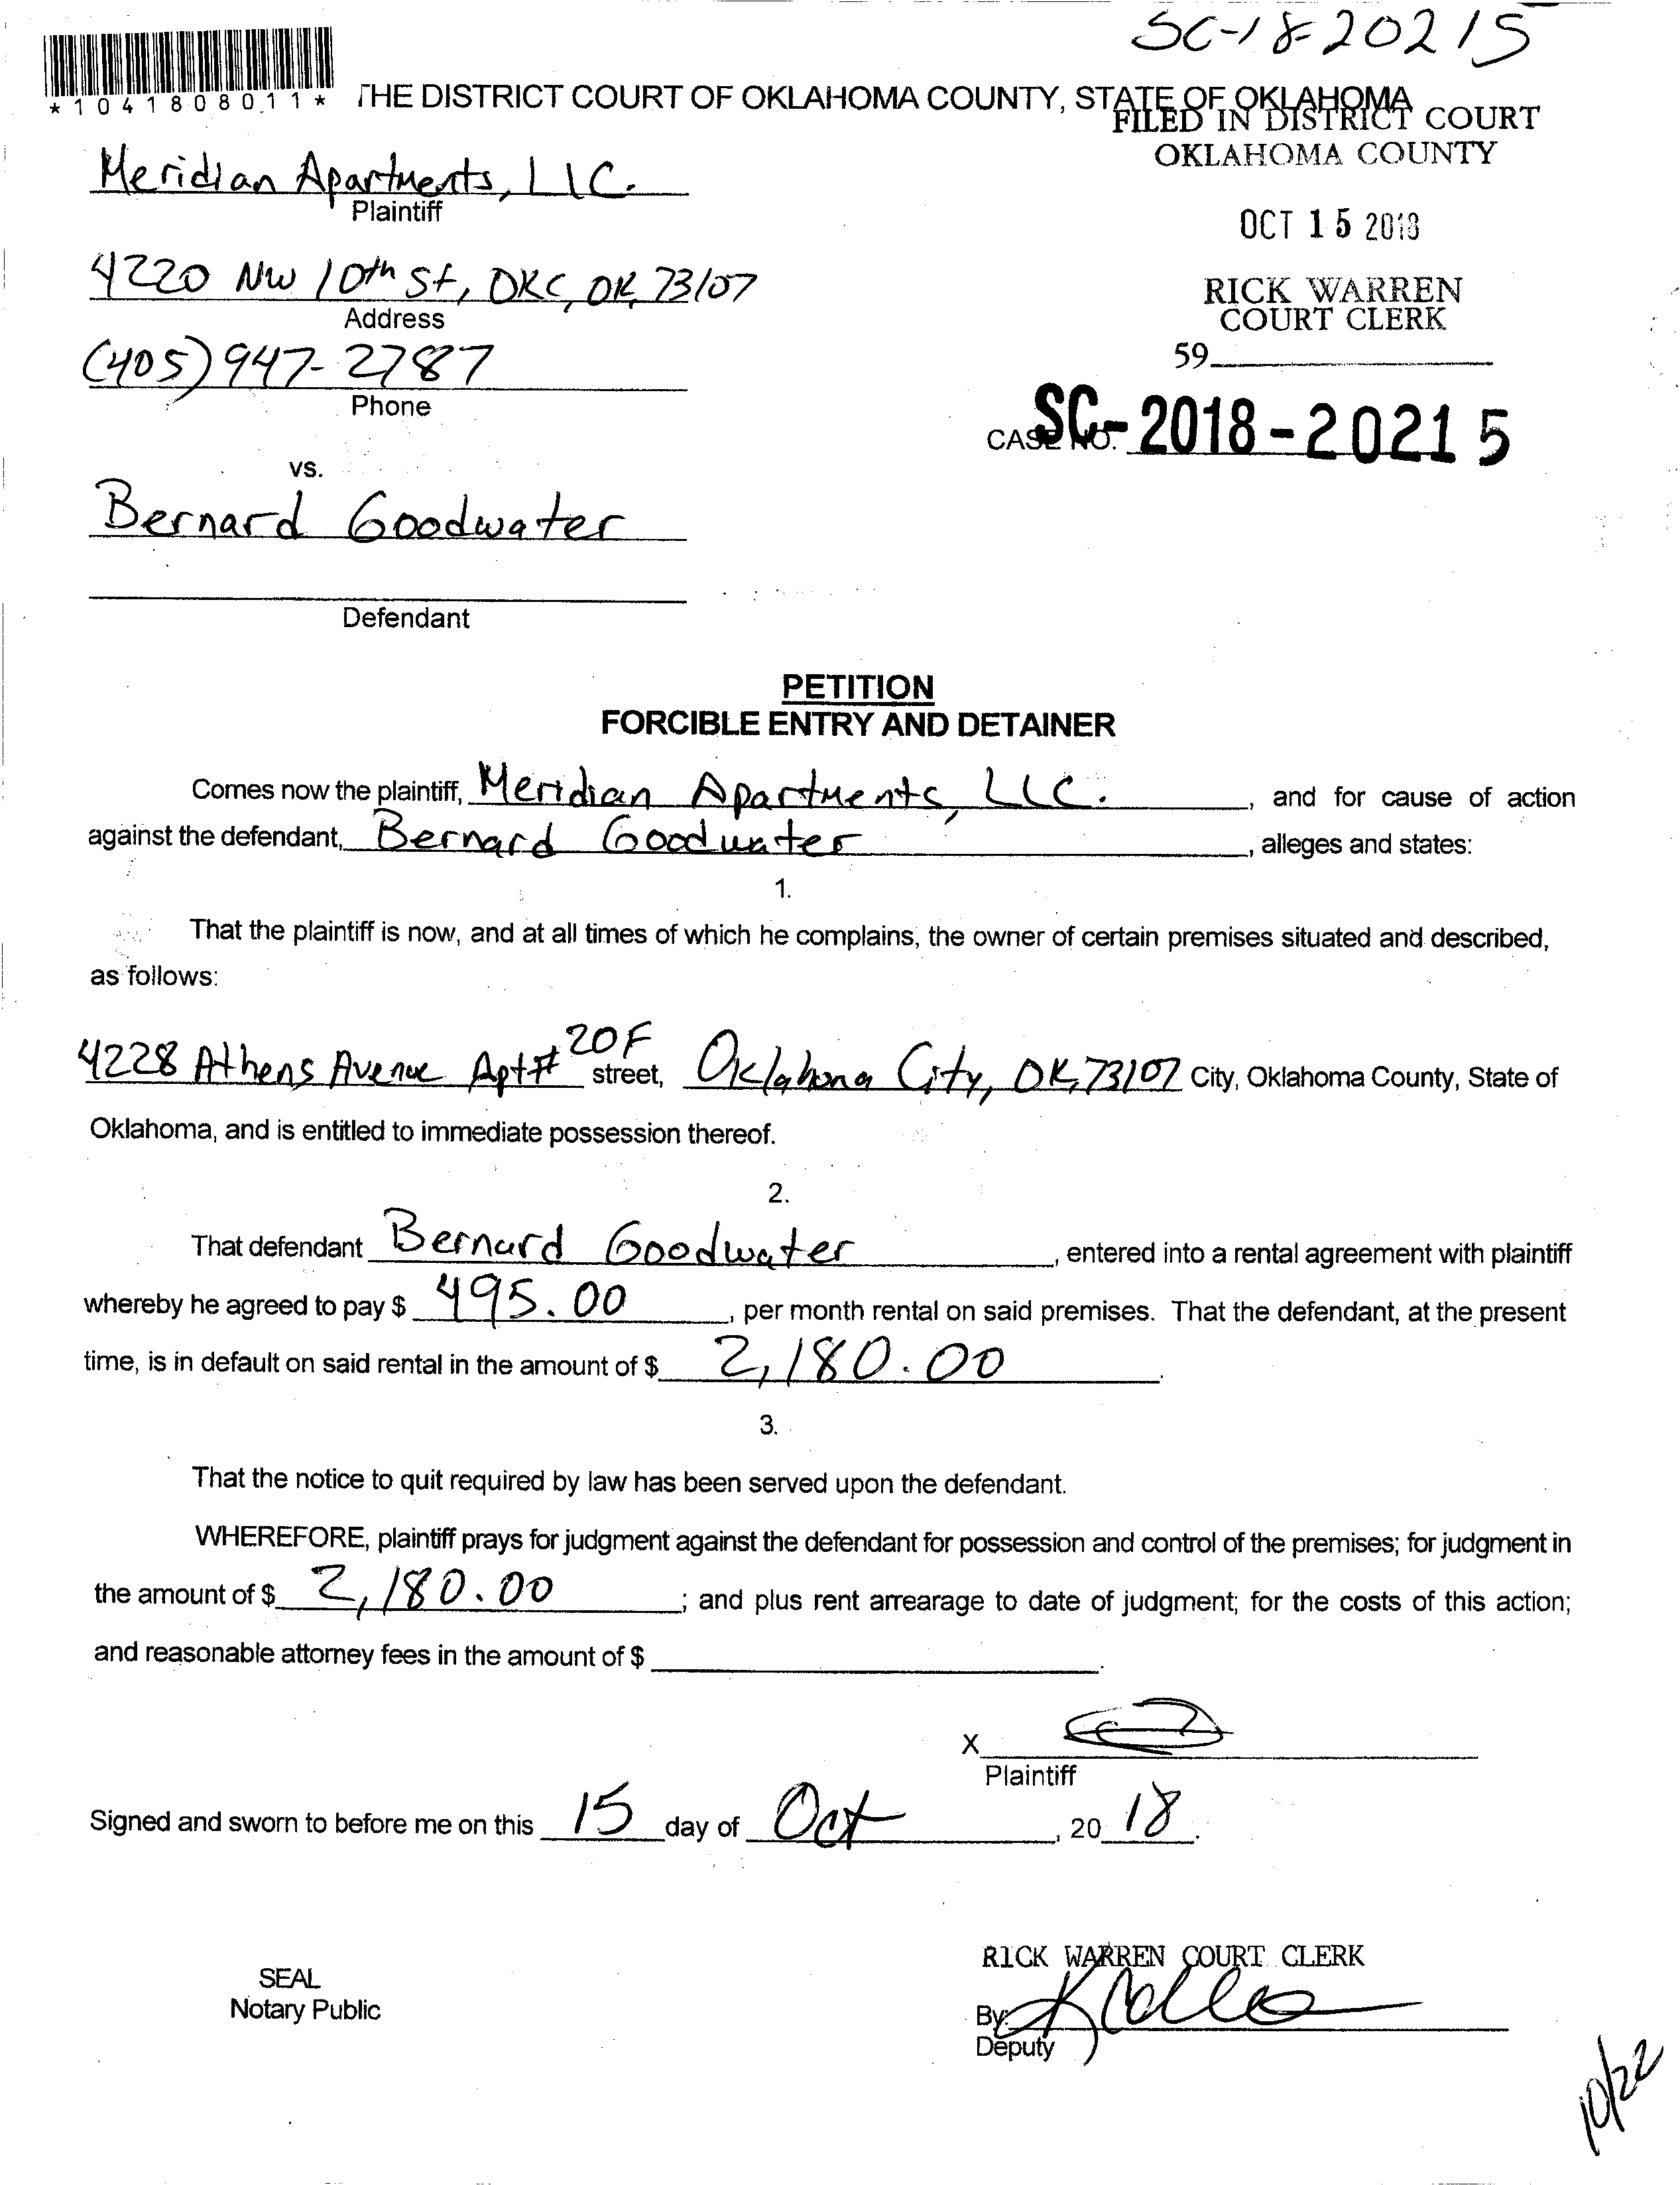 SC-18-20215
*1041808011*
THE DISTRICT COURT OF OKLAHOMA COUNTY, STATE OF OKLAHOMA
FILED IN DISTRICT COURT
OKLAHOMA COUNTY
Meridian Apartments, LLC.
Plaintiff
OCT 15 2018
4220 NW 10th St, OKC, OK, 73107
Address
RICK WARREN
COURT CLERK
(405) 947-2787
Phone
59
CASE NO. SC-2018-20215
vs.
Bernard Goodwater
Defendant
PETITION
FORCIBLE ENTRY AND DETAINER
Comes now the plaintiff, Meridian Apartments, LLC. , and for cause of action
against the defendant, Bernard Goodwater , alleges and states:
1.
That the plaintiff is now, and at all times of which he complains, the owner of certain premises situated and described,
as follows:
4228 Athens Avenue Apt# 20F street, Oklahoma City, OK, 73107 City, Oklahoma County, State of
Oklahoma, and is entitled to immediate possession thereof.
2.
That defendant Bernard Goodwater , entered into a rental agreement with plaintiff
whereby he agreed to pay $ 495.00 , per month rental on said premises. That the defendant, at the present
time, is in default on said rental in the amount of $ 2,180.00 .
3.
That the notice to quit required by law has been served upon the defendant.
WHEREFORE, plaintiff prays for judgment against the defendant for possession and control of the premises; for judgment in
the amount of $ 2,180.00 ; and plus rent arrearage to date of judgment; for the costs of this action;
and reasonable attorney fees in the amount of $ .
X
Plaintiff
Signed and sworn to before me on this 15 day of Oct , 20 18 .
RICK WARREN COURT CLERK
SEAL
Notary Public
By:
Deputy
10/22